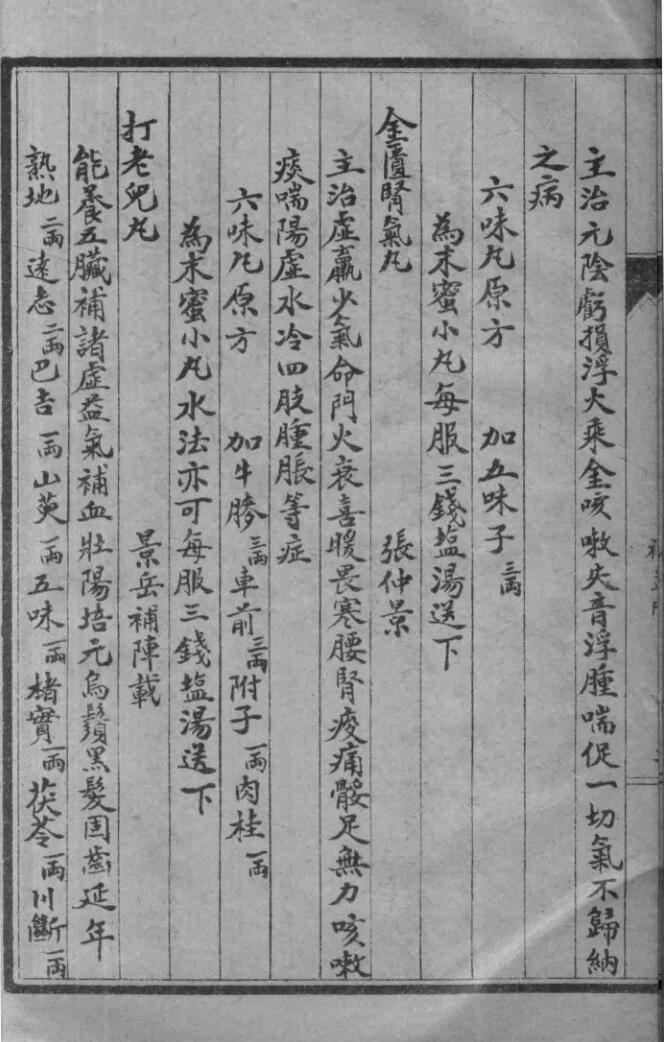 主治元陰虧損浮火乘金咳嗽失音浮腫喘促一切氣不歸納
之病
六味丸原方　加五味子三兩
為末蜜小丸每服三錢塩湯送下
金匱腎氣丸　張仲景
主治虛羸少氣命門火衰喜暖畏寒腰腎痠痛骽足無力咳嗽
痰喘陽虛水冷四肢腫脹等症
六味丸原方　加牛膝三兩車前三兩附子一兩肉桂一兩
為末蜜小丸水法亦可每服三錢塩湯送下
打老兒丸　景岳補陣載
能養五臟補諸虛益氣補血壯陽培元烏鬚黑髮固齒延年
熟地二兩遠志二兩巴吉一兩山萸一兩五味一兩楮實一兩茯苓一兩川斷一兩